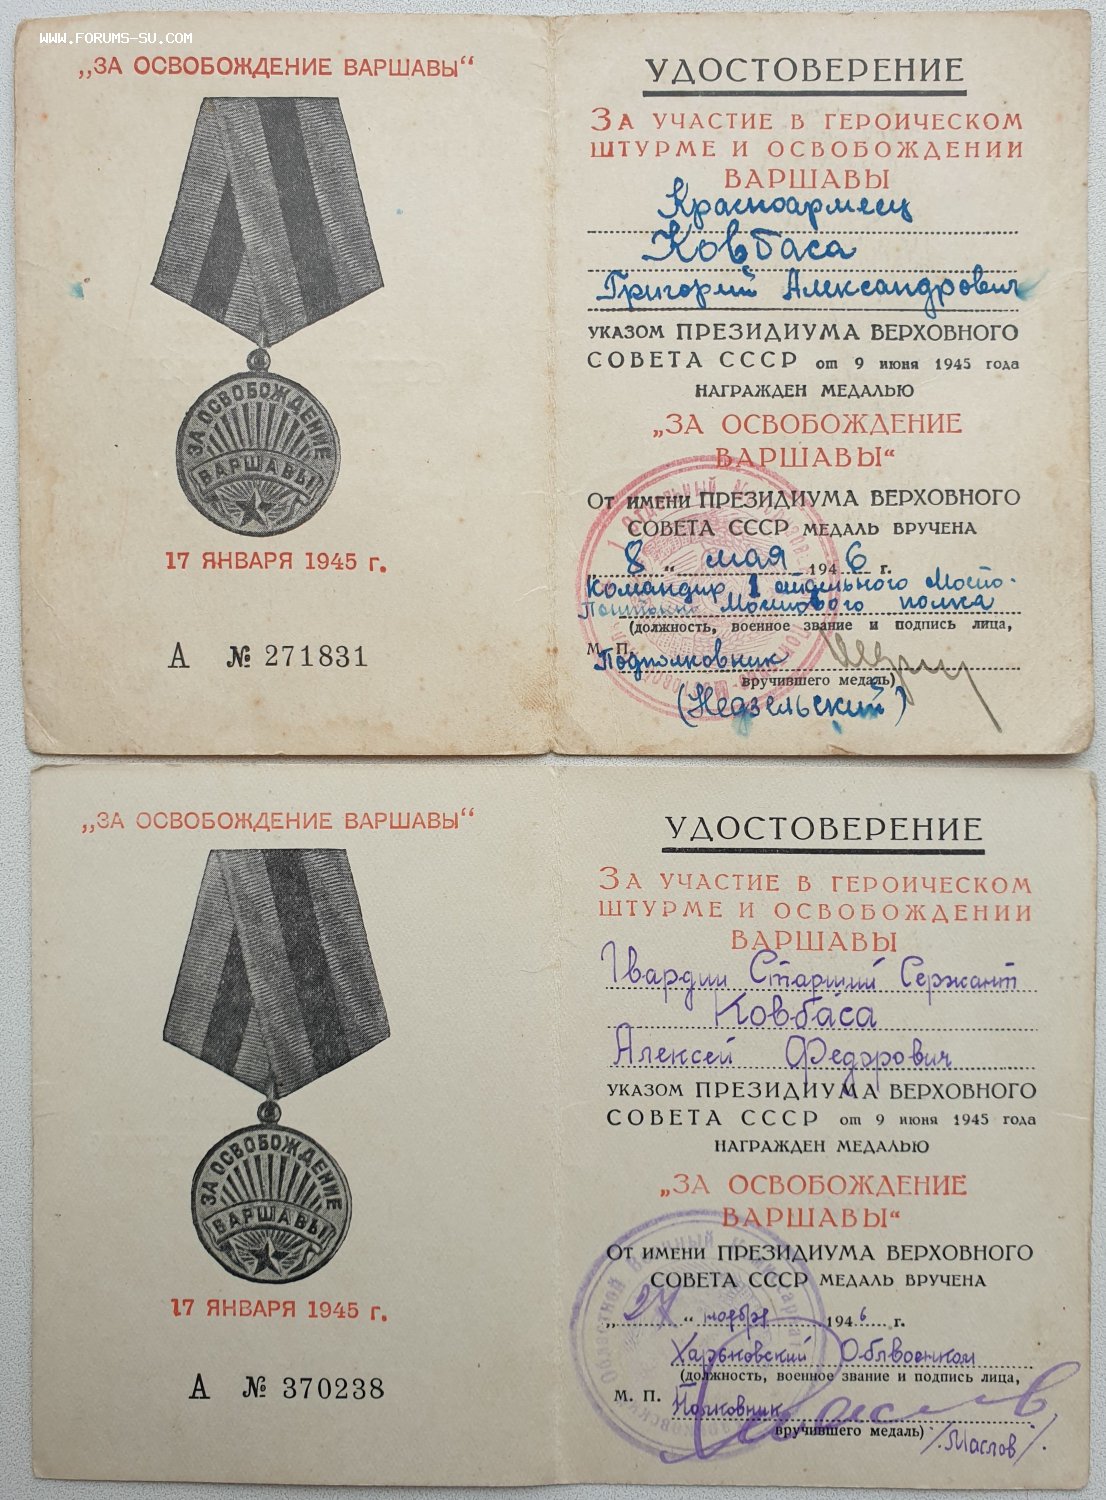 WWW.FORUMS-SU.COM
„ЗА ОСВОБОЖДЕНИЕ ВАРШАВЫ“
ЗА ОСВОБОЖДЕНИЕ
ВАРШАВЫ
17 ЯНВАРЯ 1945 г.
А № 271831
УДОСТОВЕРЕНИЕ
ЗА УЧАСТИЕ В ГЕРОИЧЕСКОМ
ШТУРМЕ И ОСВОБОЖДЕНИИ
ВАРШАВЫ
Красноармеец
Ковбаса
Григорий Александрович
УКАЗОМ ПРЕЗИДИУМА ВЕРХОВНОГО
СОВЕТА СССР от 9 июня 1945 года
НАГРАЖДЕН МЕДАЛЬЮ
„ЗА ОСВОБОЖДЕНИЕ
ВАРШАВЫ“
ОТ ИМЕНИ ПРЕЗИДИУМА ВЕРХОВНОГО
СОВЕТА СССР МЕДАЛЬ ВРУЧЕНА
„8“ мая 1946 г.
Командир 1 отдельного Мосто-
Понтонно Мостового полка
(должность, военное звание и подпись лица,
М. П. Подполковник
вручившего медаль)
(Недзельский)
„ЗА ОСВОБОЖДЕНИЕ ВАРШАВЫ“
ЗА ОСВОБОЖДЕНИЕ
ВАРШАВЫ
17 ЯНВАРЯ 1945 г.
А № 370238
УДОСТОВЕРЕНИЕ
ЗА УЧАСТИЕ В ГЕРОИЧЕСКОМ
ШТУРМЕ И ОСВОБОЖДЕНИИ
ВАРШАВЫ
Гвардии Старший Сержант
Ковбаса
Алексей Федорович
УКАЗОМ ПРЕЗИДИУМА ВЕРХОВНОГО
СОВЕТА СССР от 9 июня 1945 года
НАГРАЖДЕН МЕДАЛЬЮ
„ЗА ОСВОБОЖДЕНИЕ
ВАРШАВЫ“
ОТ ИМЕНИ ПРЕЗИДИУМА ВЕРХОВНОГО
СОВЕТА СССР МЕДАЛЬ ВРУЧЕНА
„27“ ноября 1946 г.
Харьковский Облвоенком
(должность, военное звание и подпись лица,
М. П. Полковник
вручившего медаль) /Маслов/.